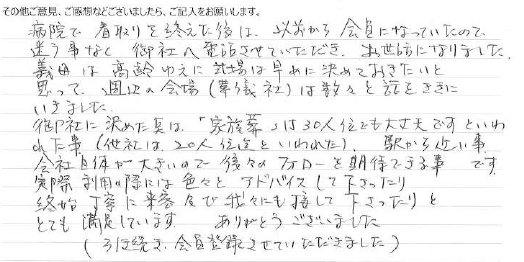 その他ご意見、ご感想などございましたら、ご記入をお願いします。
病院で看取りを終えた後は、以前から会員になっていたので
迷う事なく御社へ電話させていただき、お世話になりました。
義母は高齢ゆえに式場は早めに決めておきたいと
思って、周辺の会場(葬儀社)は数々と話をききに
いきました。
御社に決めた点は、「家族葬」は30人位でも大丈夫ですといわ
れた事(他社は、20人位迄といわれた)、駅から近い事、
会社自体が大きいので後々のフォローを期待できる事 です。
実際利用の際には色々とアドバイスして下さったり
終始丁寧に来客及び我々にも接して下さったりと
とても満足しています。 ありがとうございました
(引き続き、会員登録させていただきました)